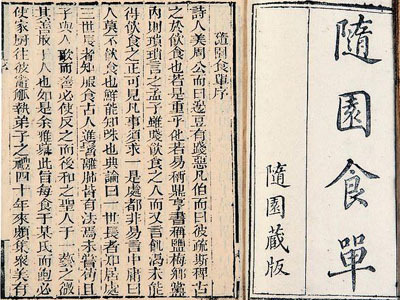 隨園食單
隨園藏版
隨園食單序
詩人美周公而曰籩豆有踐惡凡伯而曰彼疏斯稗古
之於飲食也若是重乎他若易稱鼎亨書稱鹽梅鄉黨
內則瑣瑣言之孟子雖賤飲食之人而又言飢渴未能
得飲食之正可見凡事須求一是處都非易言中庸曰
人莫不飲食也鮮能知味也典論曰一世長者知居處
三世長者知服食古人進鬐離肺皆有法焉未嘗苟且
子與人歌而善必使反之而後和之聖人于一藝之微
其善取于人也如是余雅慕此旨每食于某氏而飽必
使家廚往彼竈觚執弟子之禮四十年來頗集眾美有